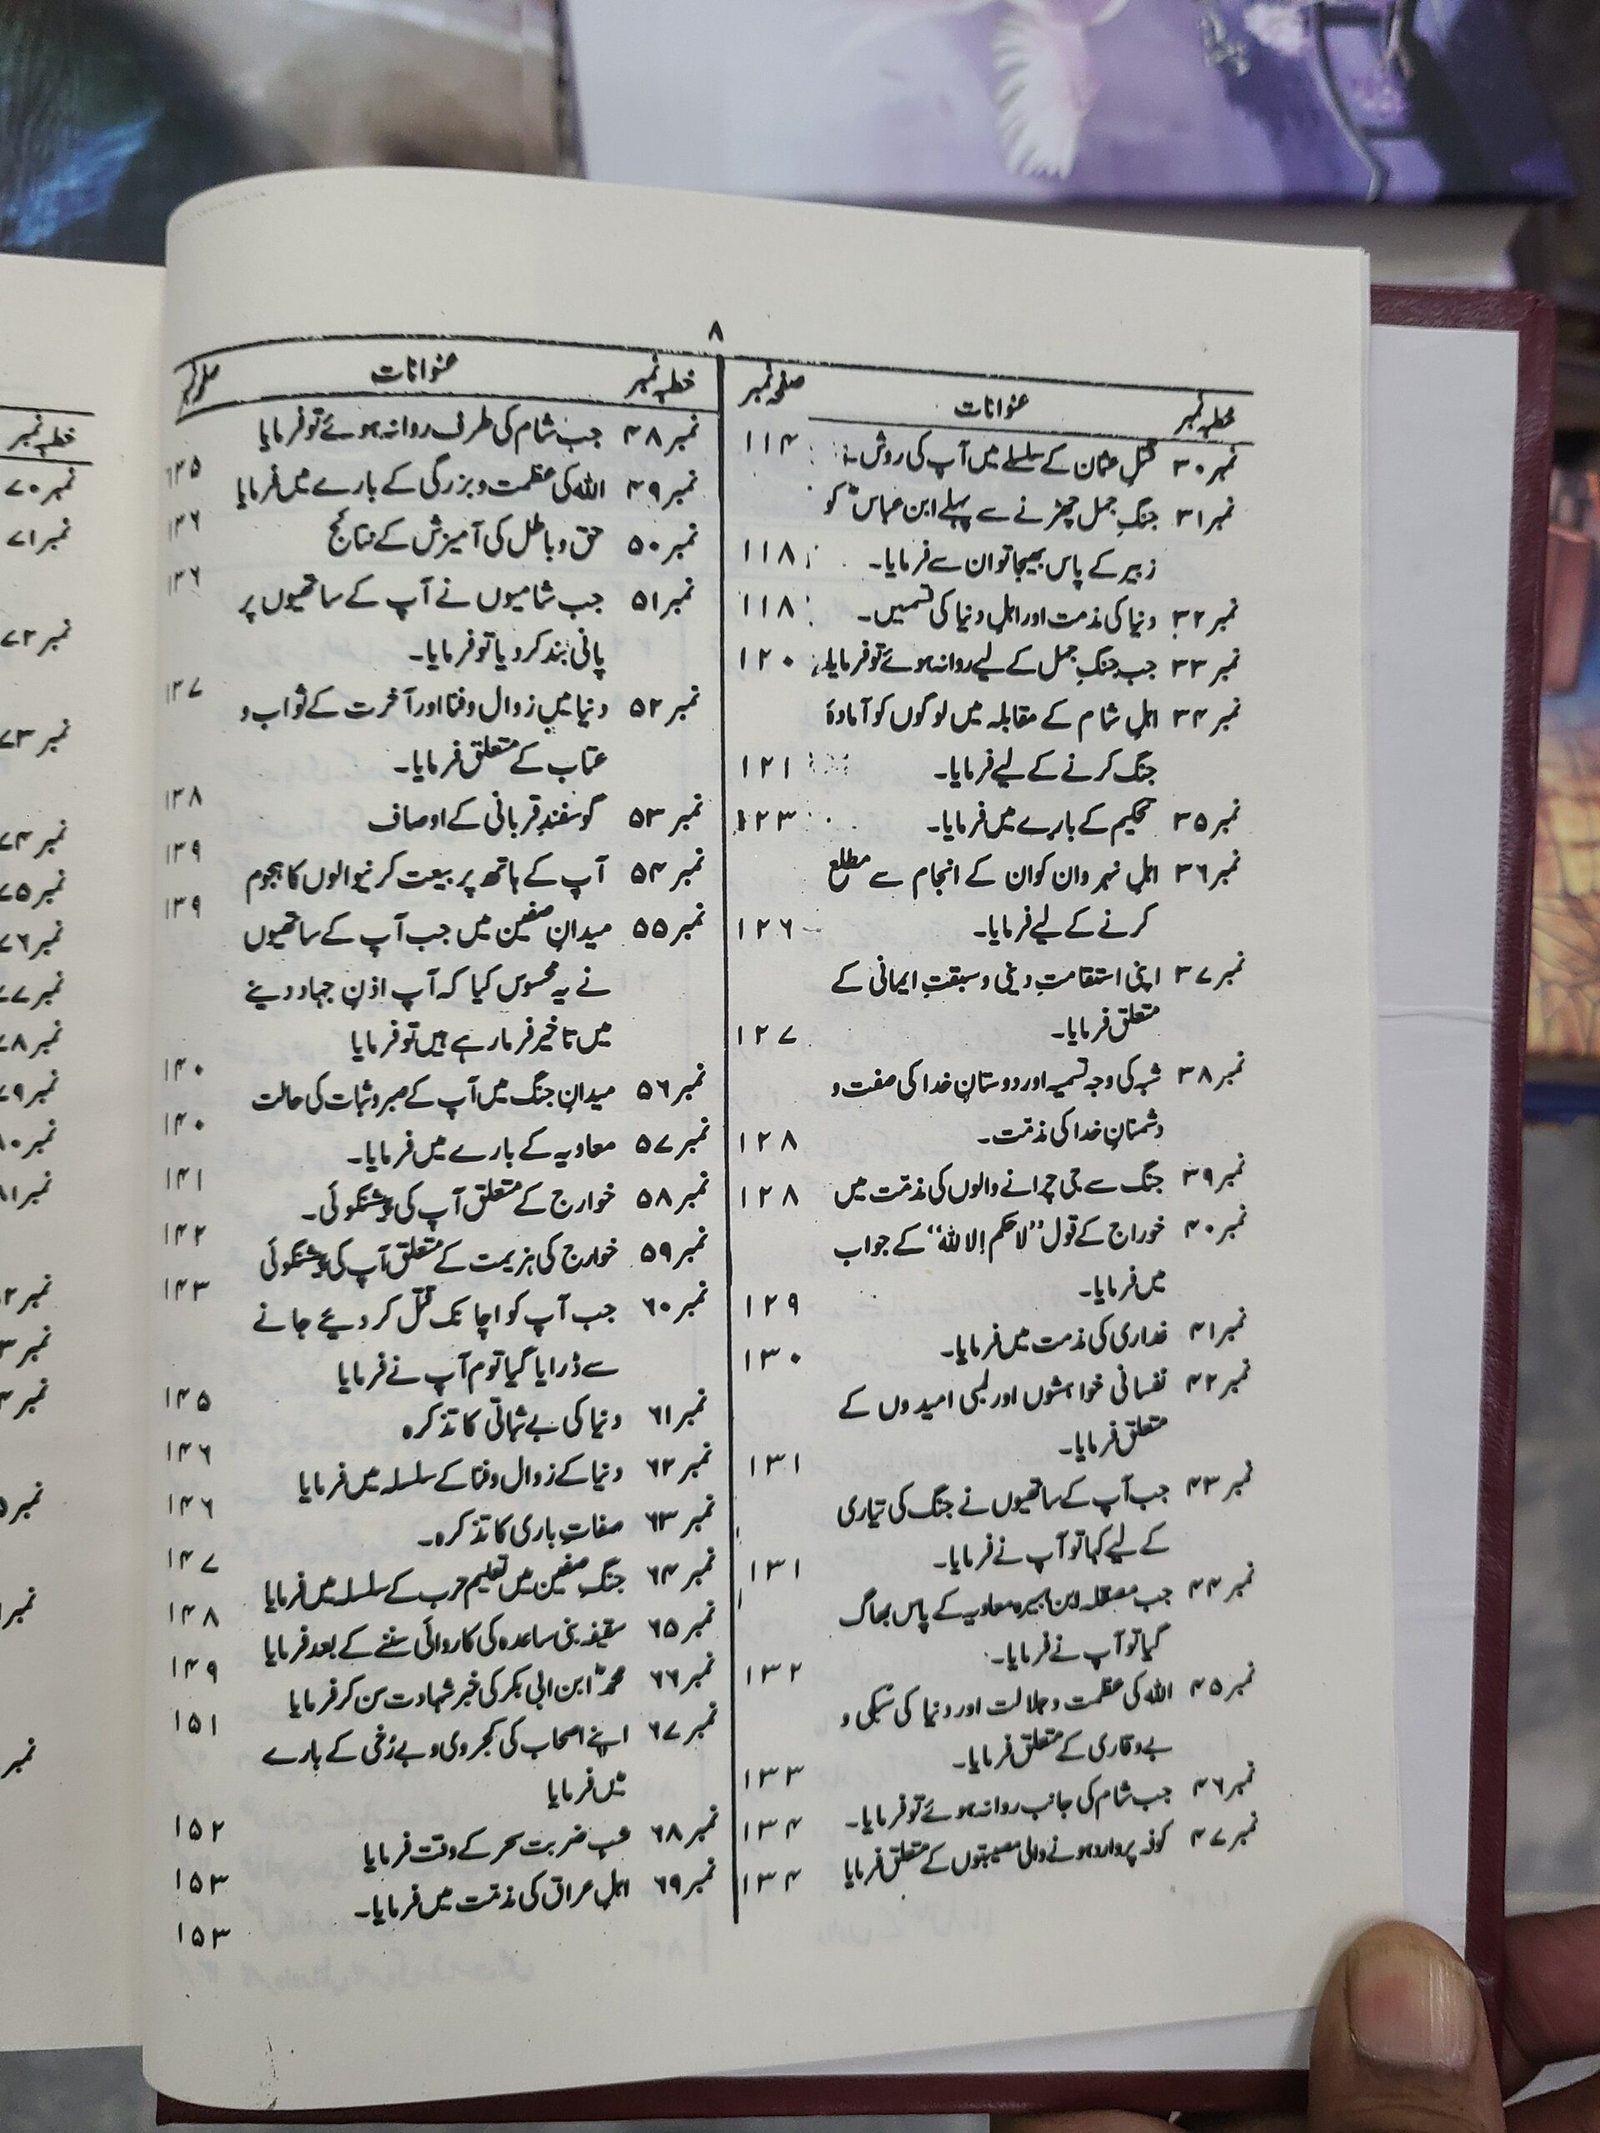 ۸
خطبہ نمبر عنوانات صفحہ نمبر
نمبر ۳۰ قتلِ عثمان کے سلسلے میں آپ کی روش ۱۱۴
نمبر ۳۱ جنگِ جمل چھڑنے سے پہلے ابن عباسؓ کو
زبیر کے پاس بھیجا تو ان سے فرمایا۔ ۱۱۸
نمبر ۳۲ دنیا کی مذمت اور اہلِ دنیا کی قسمیں۔ ۱۱۸
نمبر ۳۳ جب جنگِ جمل کے لیے روانہ ہوئے تو فرمایا۔ ۱۲۰
نمبر ۳۴ اہلِ شام کے مقابلہ میں لوگوں کو آمادۂ
جنگ کرنے کے لیے فرمایا۔ ۱۲۱
نمبر ۳۵ تحکیم کے بارے میں فرمایا۔ ۱۲۳
نمبر ۳۶ اہلِ نہروان کو ان کے انجام سے مطلع
کرنے کے لیے فرمایا۔ ۱۲۶
نمبر ۳۷ اپنی استقامتِ دینی و سبقتِ ایمانی کے
متعلق فرمایا۔ ۱۲۷
نمبر ۳۸ شبہ کی وجہ تسمیہ اور دوستانِ خدا کی صفت و
دشمنانِ خدا کی مذمت۔ ۱۲۸
نمبر ۳۹ جنگ سے جی چرانے والوں کی مذمت میں ۱۲۸
نمبر ۴۰ خوراج کے قول ”لا حکم الا للہ“ کے جواب
میں فرمایا۔ ۱۲۹
نمبر ۴۱ غداری کی مذمت میں فرمایا۔ ۱۳۰
نمبر ۴۲ نفسانی خواہشوں اور لمبی امیدوں کے
متعلق فرمایا۔ ۱۳۱
نمبر ۴۳ جب آپ کے ساتھیوں نے جنگ کی تیاری
کے لیے کہا تو آپ نے فرمایا۔ ۱۳۱
نمبر ۴۴ جب مصقلہ ابن ہبیرہ معاویہ کے پاس بھاگ
گیا تو آپ نے فرمایا۔ ۱۳۲
نمبر ۴۵ اللہ کی عظمت و جلالت اور دنیا کی سبکی و
بے وقاری کے متعلق فرمایا۔ ۱۳۳
نمبر ۴۶ جب شام کی جانب روانہ ہوئے تو فرمایا۔ ۱۳۴
نمبر ۴۷ کوفہ پر وارد ہونے والی مصیبتوں کے متعلق فرمایا ۱۳۴
خطبہ نمبر عنوانات صفحہ نمبر
نمبر ۴۸ جب شام کی طرف روانہ ہوئے تو فرمایا ۱۳۵
نمبر ۴۹ اللہ کی عظمت و بزرگی کے بارے میں فرمایا ۱۳۶
نمبر ۵۰ حق و باطل کی آمیزش کے نتائج ۱۳۶
نمبر ۵۱ جب شامیوں نے آپ کے ساتھیوں پر
پانی بند کر دیا تو فرمایا۔ ۱۳۷
نمبر ۵۲ دنیا میں زوال و فنا اور آخرت کے ثواب و
عتاب کے متعلق فرمایا۔ ۱۳۸
نمبر ۵۳ گوسفندِ قربانی کے اوصاف ۱۳۹
نمبر ۵۴ آپ کے ہاتھ پر بیعت کرنیوالوں کا ہجوم ۱۳۹
نمبر ۵۵ میدانِ صفین میں جب آپ کے ساتھیوں
نے یہ محسوس کیا کہ آپ اذنِ جہاد دینے
میں تاخیر فرما رہے ہیں تو فرمایا ۱۴۰
نمبر ۵۶ میدانِ جنگ میں آپ کے صبر و ثبات کی حالت ۱۴۰
نمبر ۵۷ معاویہ کے بارے میں فرمایا۔ ۱۴۱
نمبر ۵۸ خوارج کے متعلق آپ کی پیشنگوئی۔ ۱۴۲
نمبر ۵۹ خوارج کی ہزیمت کے متعلق آپ کی پیشنگوئی ۱۴۳
نمبر ۶۰ جب آپ کو اچانک قتل کر دیئے جانے
سے ڈرایا گیا توم آپ نے فرمایا ۱۴۵
نمبر ۶۱ دنیا کی بے ثباتی کا تذکرہ ۱۴۶
نمبر ۶۲ دنیا کے زوال و فنا کے سلسلہ میں فرمایا ۱۴۶
نمبر ۶۳ صفاتِ باری کا تذکرہ۔ ۱۴۷
نمبر ۶۴ جنگِ صفین میں تعلیم حرب کے سلسلہ میں فرمایا ۱۴۸
نمبر ۶۵ سقیفہ بنی ساعدہ کی کاروائی سننے کے بعد فرمایا ۱۴۹
نمبر ۶۶ محمدؓ ابن ابی بکر کی خبر شہادت سن کر فرمایا ۱۵۱
نمبر ۶۷ اپنے اصحاب کی کجروی و بے رُخی کے بارے
میں فرمایا ۱۵۲
نمبر ۶۸ شب ضربت سحر کے وقت فرمایا ۱۵۳
نمبر ۶۹ اہلِ عراق کی مذمت میں فرمایا۔ ۱۵۳
خطبہ نمبر
نمبر ۷۰
نمبر ۷۱
نمبر ۷۲
نمبر ۷۳
نمبر ۷۴
نمبر ۷۵
نمبر ۷۶
نمبر ۷۷
نمبر ۷۸
نمبر ۷۹
نمبر ۸۰
نمبر ۸۱